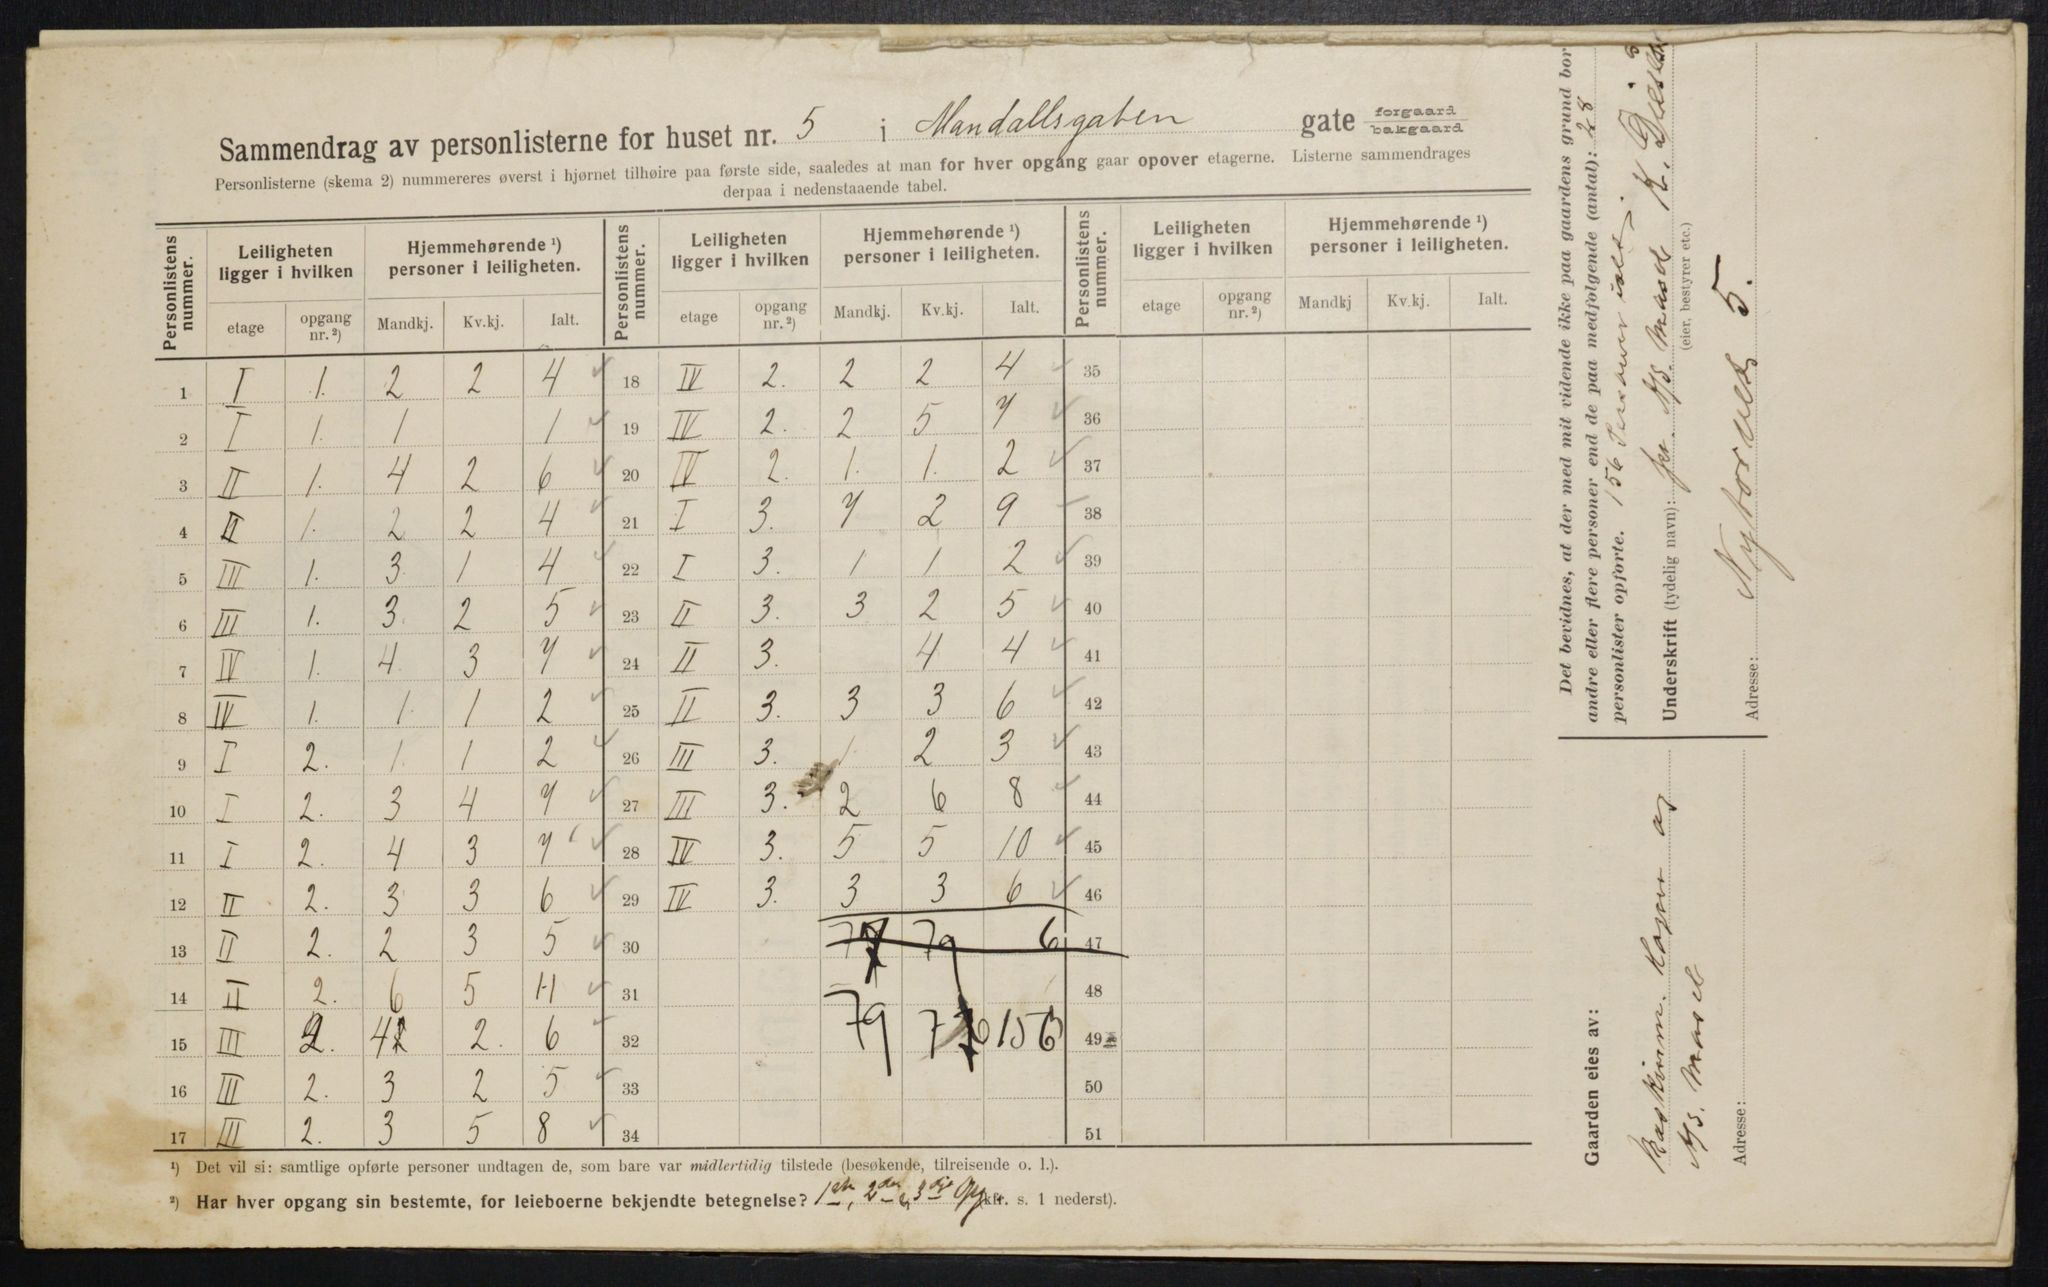 Sammendrag av personlisterne for huset nr. 5 i Mandallsgaten gate forgaard bakgaard
Personlisterne (skema 2) nummereres øverst i hjørnet tilhøire paa første side, saaledes at man for hver opgang gaar opover etagerne. Listerne sammendrages
derpaa i nedenstaaende tabel.
Personlistens nummer. Leiligheten ligger i hvilken Hjemmehørende ¹) personer i leiligheten. Personlistens nummer. Leiligheten ligger i hvilken Hjemmehørende ¹) personer i leiligheten. Personlistens nummer. Leiligheten ligger i hvilken Hjemmehørende ¹) personer i leiligheten.
etage opgang nr. ²) Mandkj. Kv.kj. Ialt. etage opgang nr. ²) Mandkj. Kv.kj. Ialt. etage opgang nr. ²) Mandkj Kv.kj. Ialt.
1 I 1. 2 2 4 18 IV 2. 2 2 4 35
2 I 1. 1 1 19 IV 2. 2 5 7 36
3 II 1. 4 2 6 20 IV 2. 1. 1. 2 37
4 II 1. 2 2 4 21 I 3. 7 2 9 38
5 III 1. 3 1 4 22 I 3. 1 1 2 39
6 III 1. 3 2 5 23 II 3. 3 2 5 40
7 IV 1. 4 3 7 24 II 3. 4 4 41
8 IV 1. 1. 1 2 25 II 3. 3 3 6 42
9 I 2. 1. 1 2 26 III 3. 1. 2 3 43
10 I 2. 3 4 7 27 III 3. 2 6 8 44
11 I 2. 4 3 7 28 IV 3. 5 5 10 45
12 II 2. 3 3 6 29 IV 3. 3 3 6 46
13 II 2. 2 3 5 30 77 79 6 47
14 II 2. 6 5 11 31 48
15 III 2. 4 2. 6 32 79 77 156 49
16 III 2. 3 2 5 33 50
17 III 2. 3 5 8 34 51
¹) Det vil si: samtlige opførte personer undtagen de, som bare var midlertidig tilstede (besøkende, tilreisende o. l.).
²) Har hver opgang sin bestemte, for leieboerne bekjendte betegnelse? 1ste, 2den, 3dje Opg (kfr. s. 1 nederst).
Det bevidnes, at der med mit vidende ikke paa gaardens grund bor
andre eller flere personer end de paa medfølgende (antal): 28
personlister opførte. 156 Personer ialt.
Underskrift (tydelig navn): for N/B. Mast K.
(eier, bestyrer etc.)
Adresse: Nytorvet 5.
Gaarden eies av:
N/B. Mast
Adresse: